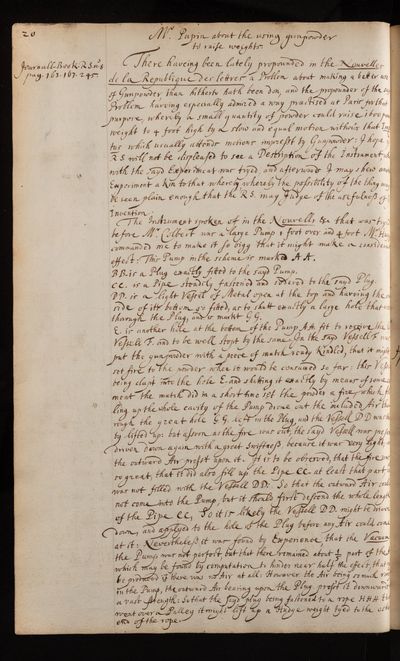 20
Mr. Papin about the using gunpowder
to raise weights.
Journall-Book R.S. n°5
pag. 163. 167. 245.
There having been lately propounded in the Nouvelles
de la Republique des lettres a Problem about making a better use
of Gunpowder than hitherto hath been don, and the propounder of the said
Problem having especially admired a way practised at Paris for that
purpose, whereby a small quantity of powder could raise 1600 
weight to 4 foot high by a slow and equal motion without that
which usually attends motions imprest by Gunpowder: I hope
R S will not be displeased to see a Description of the Instrument
with the sayd Experiment was tryed, and afterwards I may shew
Experiment a kin to that whereby the possibility of the thing may
be seen plain enough, that the R S. may Judge of the usefulness of
Invention.
The Instrument spoken of in the Nouvells &a that was tryed
before Mr. Colbert was a large Pump 1 foot over and 4 foot
commanded me to make it so bigg that it might make a considerable
effect: This Pump in the scheme is marked A A.
B B. is a Plug exactly fitted to the sayd Pump.
CC. is a Pipe steadily fastened and sodered to the sayd Plug.
DD. is a light Vessell of Metal open at the top and having the
side of its bottom so fitted, as to shutt exactly a large hole that
thorough the Plug, and is markt G G.
E. is another hole at the bottom of the Pump AA fit to receive the
Vessell F. and to be well stopt by the same. In the sayd Vessell F
put the gunpowder with a peece of match ready kindled, that it might
set fire to the powder when it would be consumed so far: this Vessell
being clapt into the hole E. and shutting it exactly by means of some
ment the match did in a short time set the powder a fire, which
ling up the whole cavity of the Pump drove out the included Air tho-
rough the great hole G G. left in the Plug, and the Vessell DD
by lifted up: but assoon as the fire was out, the sayd Vessell was
driven down again with a great swiftness, because it was very light,
the outward Air prest upon it. It is to be observed, that the fire
so great, that it did also fill up the Pipe CC. at least that part
was not filled with the Vessell DD: So that the outward Air could
not come into the Pump, but it should first descend the whole length
of the Pipe CC, So it is likely the Vessell DD. might be driven
down, and applyed to the hole of the Plug before any Air could come
at it: Nevertheless it was found by Experience that the Vacuum
the Pump, was not perfect but that there remained about of the
which may be found by computation to hinder near half the effect that
be produced if there was no Air at all: However the Air being so much
in the Pump, the outward Air bearing upon the Plug, prest it downward
a vast strength: So that the sayd plug being fastened to a rope HHH
went over a Pulley it might lift up a Hudge weight tyed to the other
end of the rope.